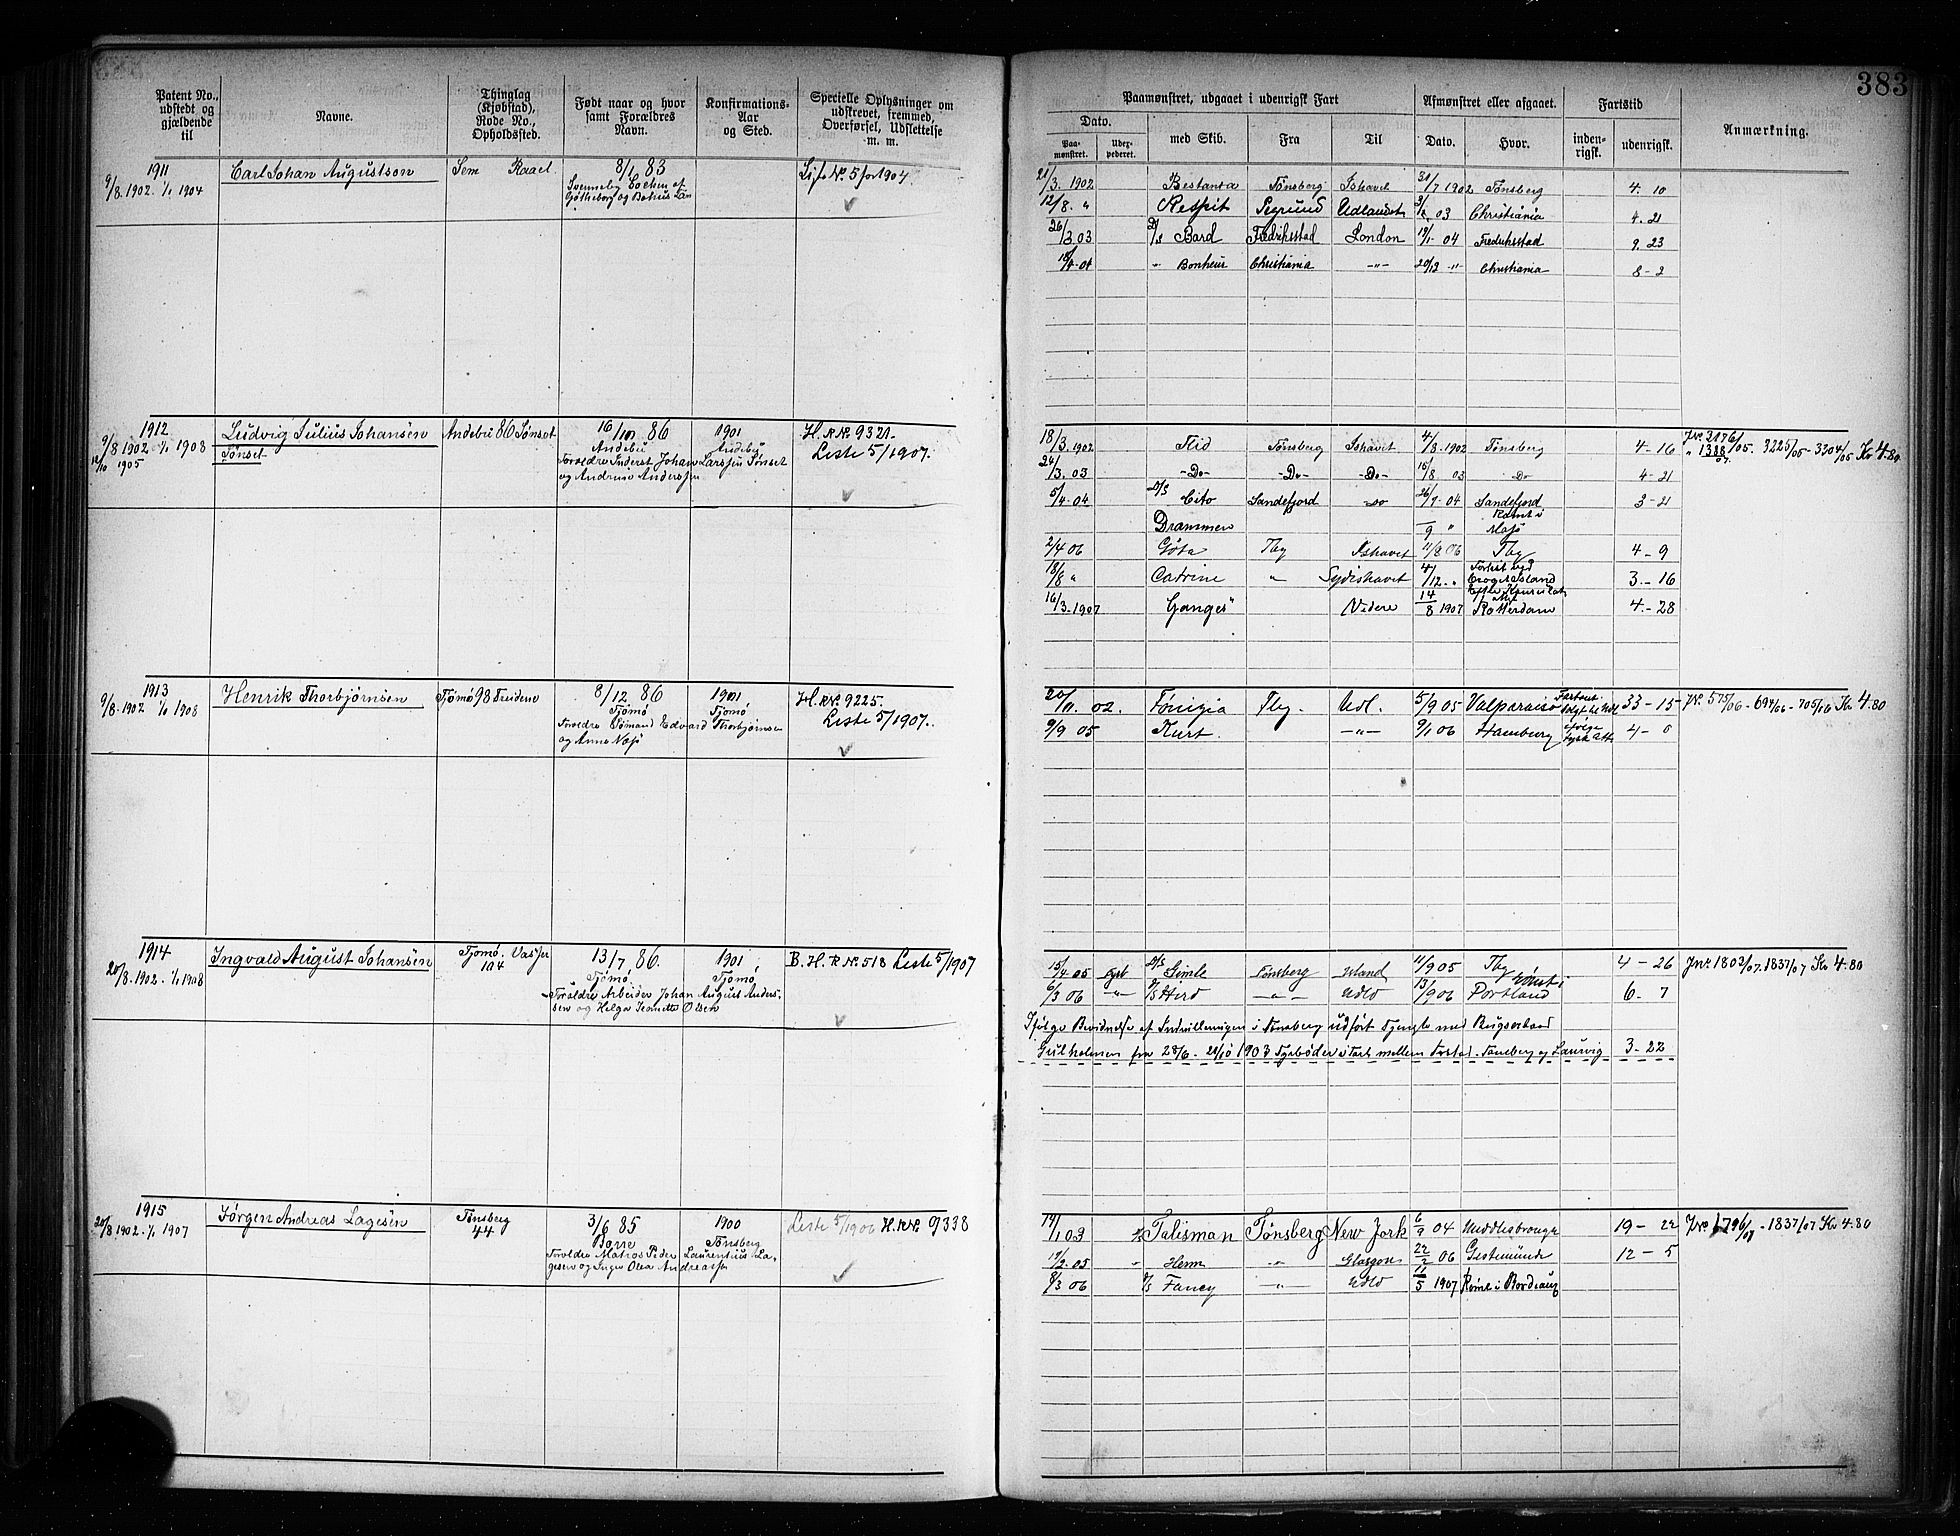 383
Patent No., udstedt og gjældende til
Navne.
Thinglag (Kjøbstad), Rode No., Opholdssted.
Født naar og hvor samt Forældres Navn.
Konfirmations- Aar og Sted.
Specielle Oplysninger om udstrevet, fremmed, Overførsel, Udslettelse m. m.
Paamønstret, udgaaet i udenrigsk Fart
Afmønstret eller afgaaet.
Fartstid
Anmærkning.
Dato.
Paa- mønstret.
med Skib.
Fra
Til
Dato.
Hvor.
inden- rigsk.
udenrigsk.
1911
9/8. 1902. 1/1 1904
Carl Johan Augustson
Sem Raael
8/6 83
Svenneby Socken af
Gøtheborg og Bohus Län
Liste No. 5 for 1904.
21/3. 1902 Bestanta Tønsberg Ishavet 31/7 1902 Tønsberg 4. 10
12/8. " Respit Udlandet 03 Christiania 4. 21
26/3 03 D/s Bard Fredriksstad London 19/1 04 Fredriksstad 9. 23
18/4-04 " Bonheur Christiania -"- 20/12 -"- Christiania 8-2
1912
9/8 1902 1/1 1908
12/10 1905
Ludvig Julius Johansen
Tønset
Andebu 86 Tønset
16/10 86
Andebu
Forældre Inderst Johan Larssen Tønset
og Andrine Anderssen
1901
Andebu
H. R. No. 9321.
Liste 5/1907.
18/3. 1902 Flid Tønsberg Ishavet 4/8. 1902 Tønsberg 4-16
24/3. 03 -Do- -Do- -Do- 15/8 03 Do 4-21
5/4-04 D/s Cito Sandefjord Do 26/7-04 Sandefjord 3-21
Drammen 9 " Rømt i
2/4 06 Gøta Tbg Ishavet 11/8 06 Tbg 4-9
18/8 " Catrine " Sydishavet 4/12. " Forlist ved
Crozet Island 3.-16
16/3-1907 "Ganges" Videre 14/8 1907 Rotterdam 4.-28
JNo. 2176/05. 3225/05-3304/05 Kr 4.80
" 1388/07.
1913
9/8. 1902 1/1 1908
Henrik Thorbjørnsen
Tjømø 98 Treidene
8/12 86
Tjømø
Forældre Sømand Edvard Thorbjørnsen
og Anna
1901
Tjømø
H. R No. 9225.
Liste 5/1907.
20/11. 02. Fønixia Tbg. Udl. 5/9 05 Valparaiso 33-15
9/9 05 Kurt. -"- 9/1 06 Hamburg 4-0
JNo. 575/06-694/06-705/06 Kr. 4.80
1914
20/8. 1902. 1/1 1908
Ingvald August Johansen
Tjømø. Vasser
104
13/7 86.
Tjømø
Forældre Arbeider Johan August Anders-
sen og Helga Jennette Olsen
1901
Tjømø
B. H. R No. 518 Liste 5/1907
15/4 05 Fyrb D/s Gimle Tønsberg Udland 11/9 05 Tbg 4-26
6/3 06 -"- D/s Herd -"- Udld 13/9 06 Rømt i
Portland 6-7
Jnr. 1802/07. 1837/07 Kr 4.80
Ifølge Bevidnelse af Indrulleringen i Tønsberg udført Tjeneste med Bugserbaad
Gulholmen fra 28/6-20/10 1903 Fyrbøder i Fart mellem Tønsberg og Laurvig 3-22
1915
20/8. 1902. 1/1 1907
Jørgen Andreas Lagesen
Tønsberg
44
3/6 85
Borre
Forældre Matros Peder Laurentius La-
gesen og Inger Olea Andreassen
1900
Tønsberg
Liste 5/1906 H. R No. 9338
14/1 03 Talisman Tønsberg New York 6/9 04 Middlesbrough 19-22
14/2. 05 " Herm " Glasgow 22/2 06 Gestemünde 12-5
8/3 06 D/s Fancy -"- Udld 11/5 1907 Rømt i Bordeaux
JNo. 1796/07-1837/07 Kr 4.80